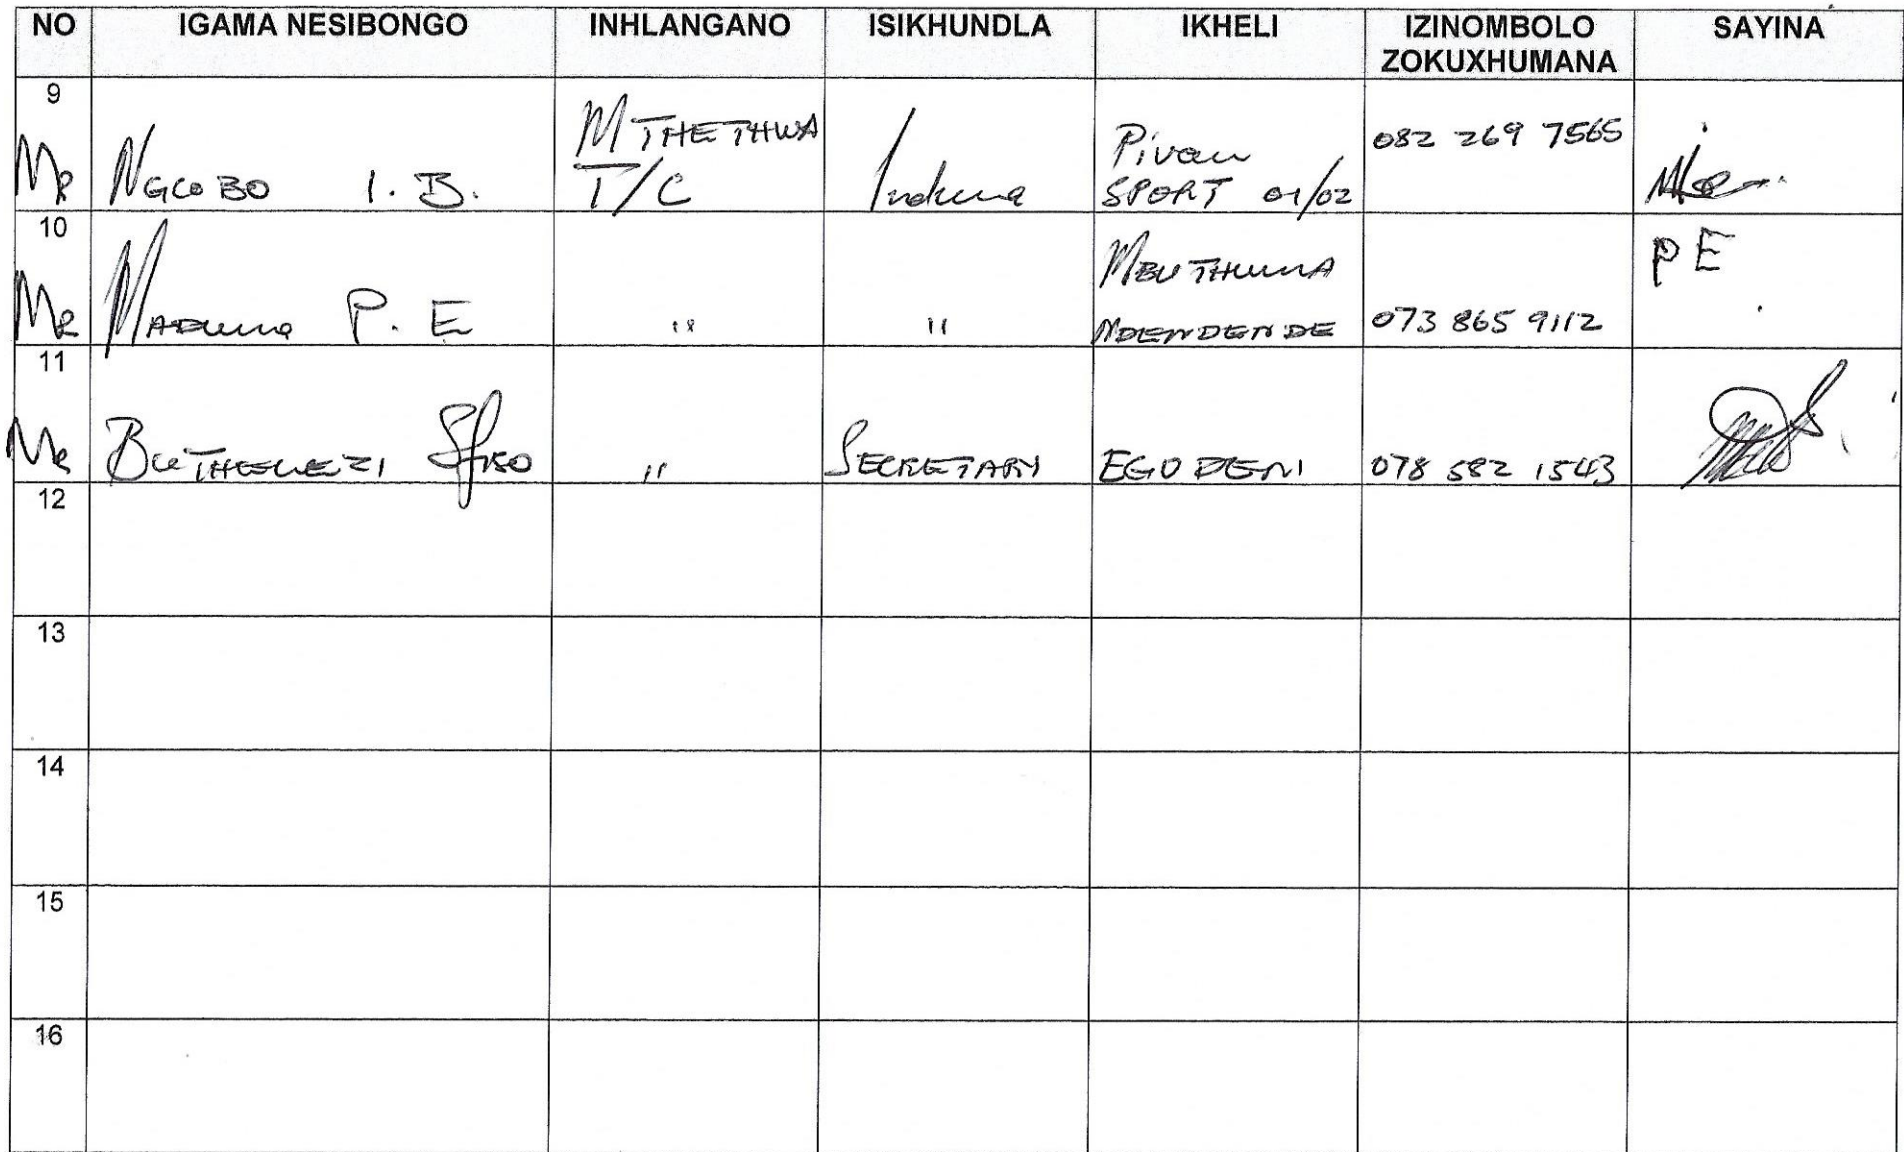 NO IGAMA NESIBONGO INHLANGANO ISIKHUNDLA IKHELI IZINOMBOLO ZOKUXHUMANA SAYINA
9
Mr NGCOBO I. B. MTHETHWA T/C Induna Pivan SPORT 01/02 082 269 7565
10
Mr MADUNA P. E " " NDENDENDE 073 865 9112 PE
11
Mr BUTHELEZI Sfiso " SECRETARY EGODENI 078 582 1543
12
13
14
15
16